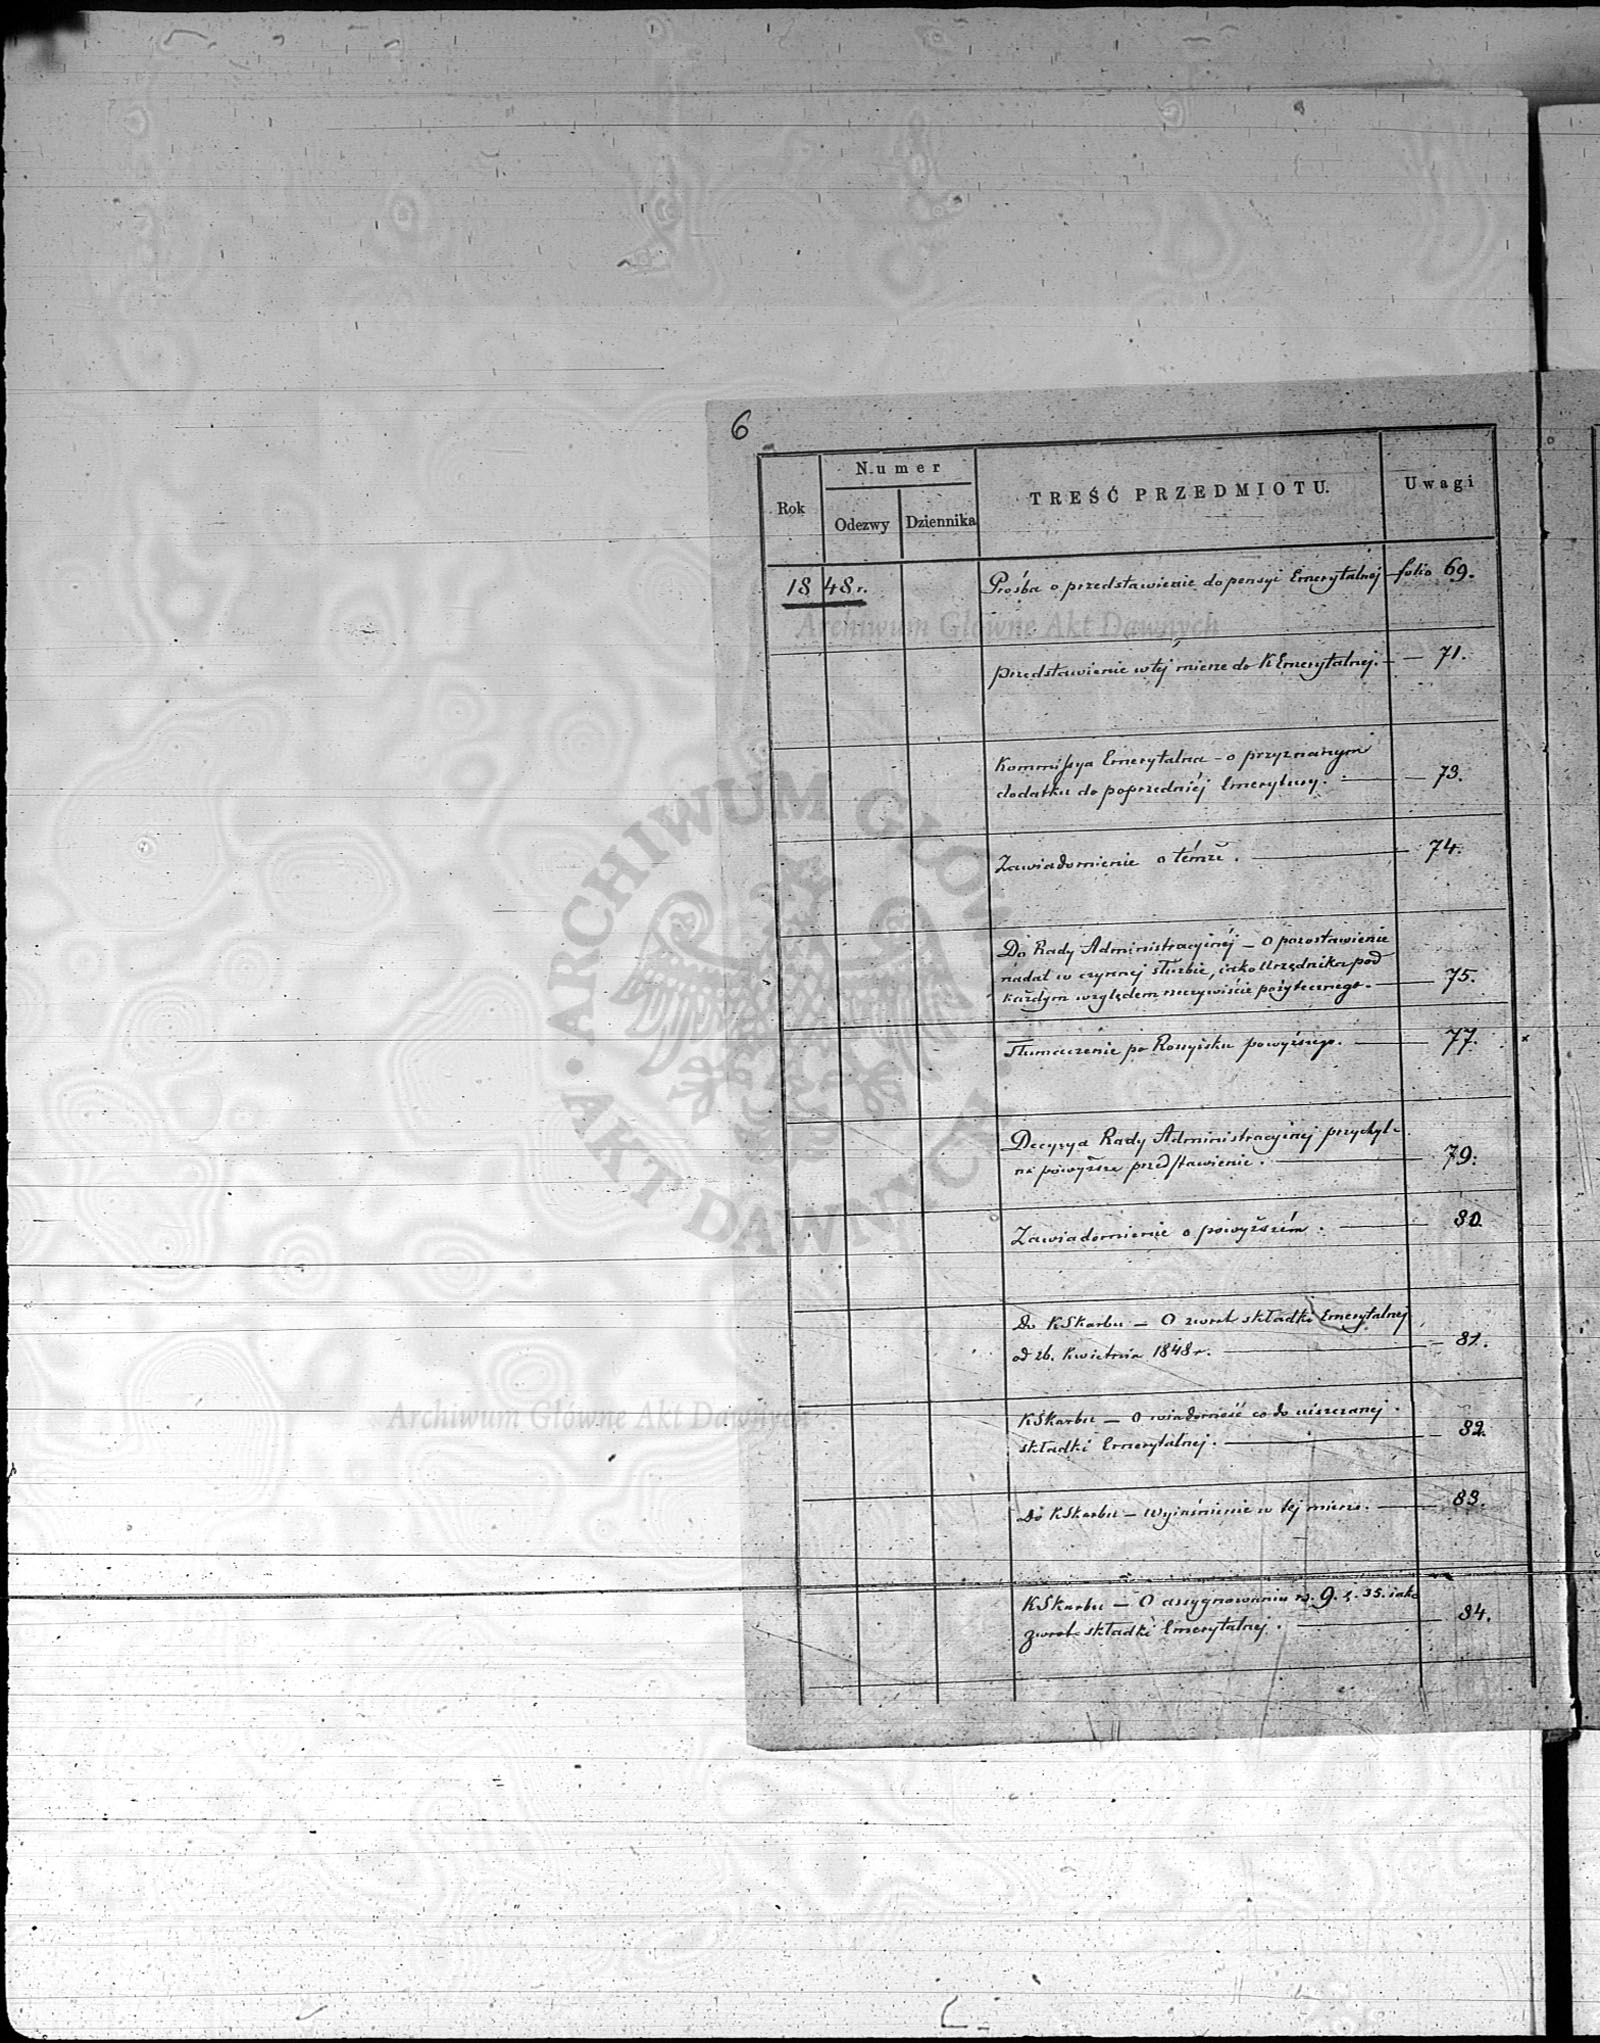 6
Rok
Numer
Odezwy
Dziennika
TREŚĆ PRZEDMIOTU.
Uwagi
1848 r.
Prośba o przedstawienie do pensyi Emerytalnej — folio 69.
przedstawienie w tej mierze do K Emerytalnej. — — 71.
Kommissya Emerytalna – o przyznanym
dodatku do poprzedniéj Emerytury. — — 73.
Zawiadomienie o témże. — 74.
Do Rady Administracyjnéj – o pozostawienie
nadal w czynnej służbie, iako Urzędnika pod
każdym względem rzeczywiście pożytecznego. — 75.
Tłumaczenie po Rossyisku powyższego. — 77.
Decyzya Rady Administracyjnej przychyl-
na powyższe przedstawienie. — 79.
Zawiadomienie o powyższém. — 80.
Do K Skarbu — O zwrot składki Emerytalnej
od 26. Kwietnia 1848 r. — 81.
K Skarbu — O wiadomość co do uiszczanej
składki Emerytalnej. — 82.
Do K Skarbu — Wyiaśnienie w tej mierze. — 83.
K Skarbu — O assygnowaniu rs. 9. k. 35. iako
zwrot składki Emerytalnej. — 84.
ARCHIWUM GŁÓWNE AKT DAWNYCH
Archiwum Główne Akt Dawnych
Archiwum Główne Akt Dawnych